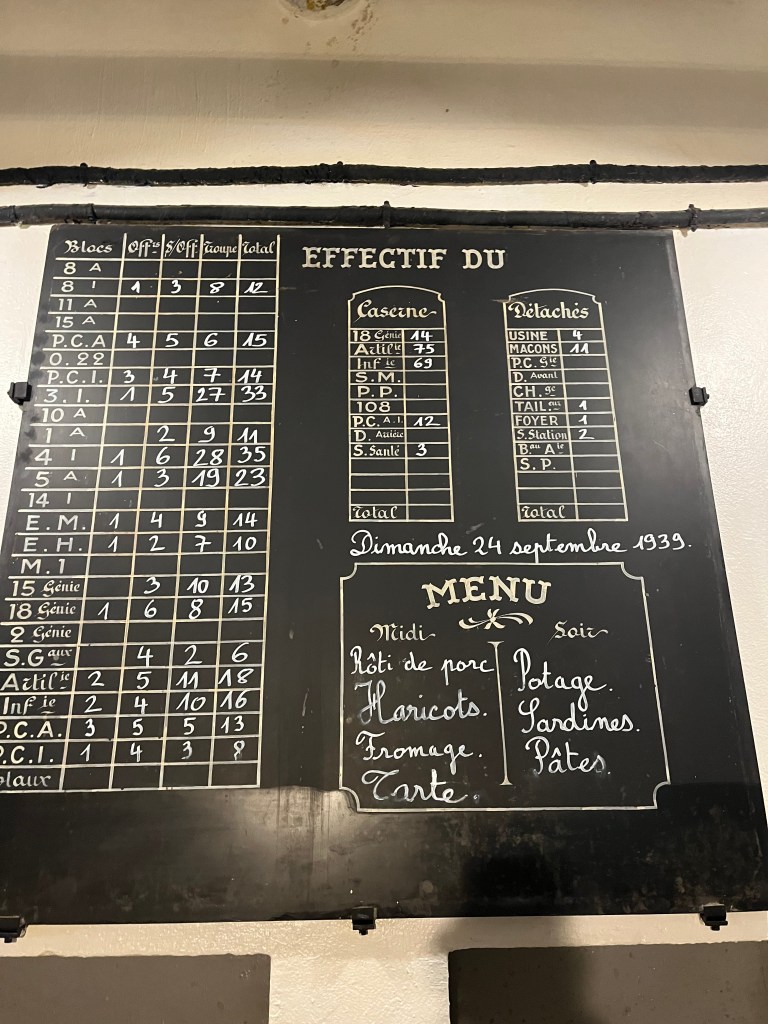 Blocs Off.rs S/Off Troupe Total
8 A
8 I 1 3 8 12
11 A
15 A
P.C.A 4 5 6 15
O.22
P.C.I. 3 4 7 14
3.I. 1 5 27 33
10 A
1 A 2 9 11
4 I 1 6 28 35
5 A 1 3 19 23
14 I
E.M. 1 4 9 14
E.H. 1 2 7 10
M.1
15 Génie 3 10 13
18 Génie 1 6 8 15
2 Génie
S.Gaux 4 2 6
Artilie 2 5 11 18
Infie 2 4 10 16
P.C.A. 3 5 5 13
P.C.I. 1 4 3 8
EFFECTIF DU
Caserne
18 Génie 14
Artilie 75
Infie 69
S.M.
P.P.
108
P.C. A.I. 12
D. Arrière
S. Santé 3
Total
Détachés
USINE 4
MAÇONS 11
P.C. Gie
D. Avant
CH. ge
TAIL.eur 1
FOYER 1
S.Station 2
Bau Aie
S.P.
Total
Dimanche 24 septembre 1939.
MENU
Midi
Rôti de porc
Haricots.
Fromage.
Tarte.
Soir
Potage.
Sardines.
Pâtes.